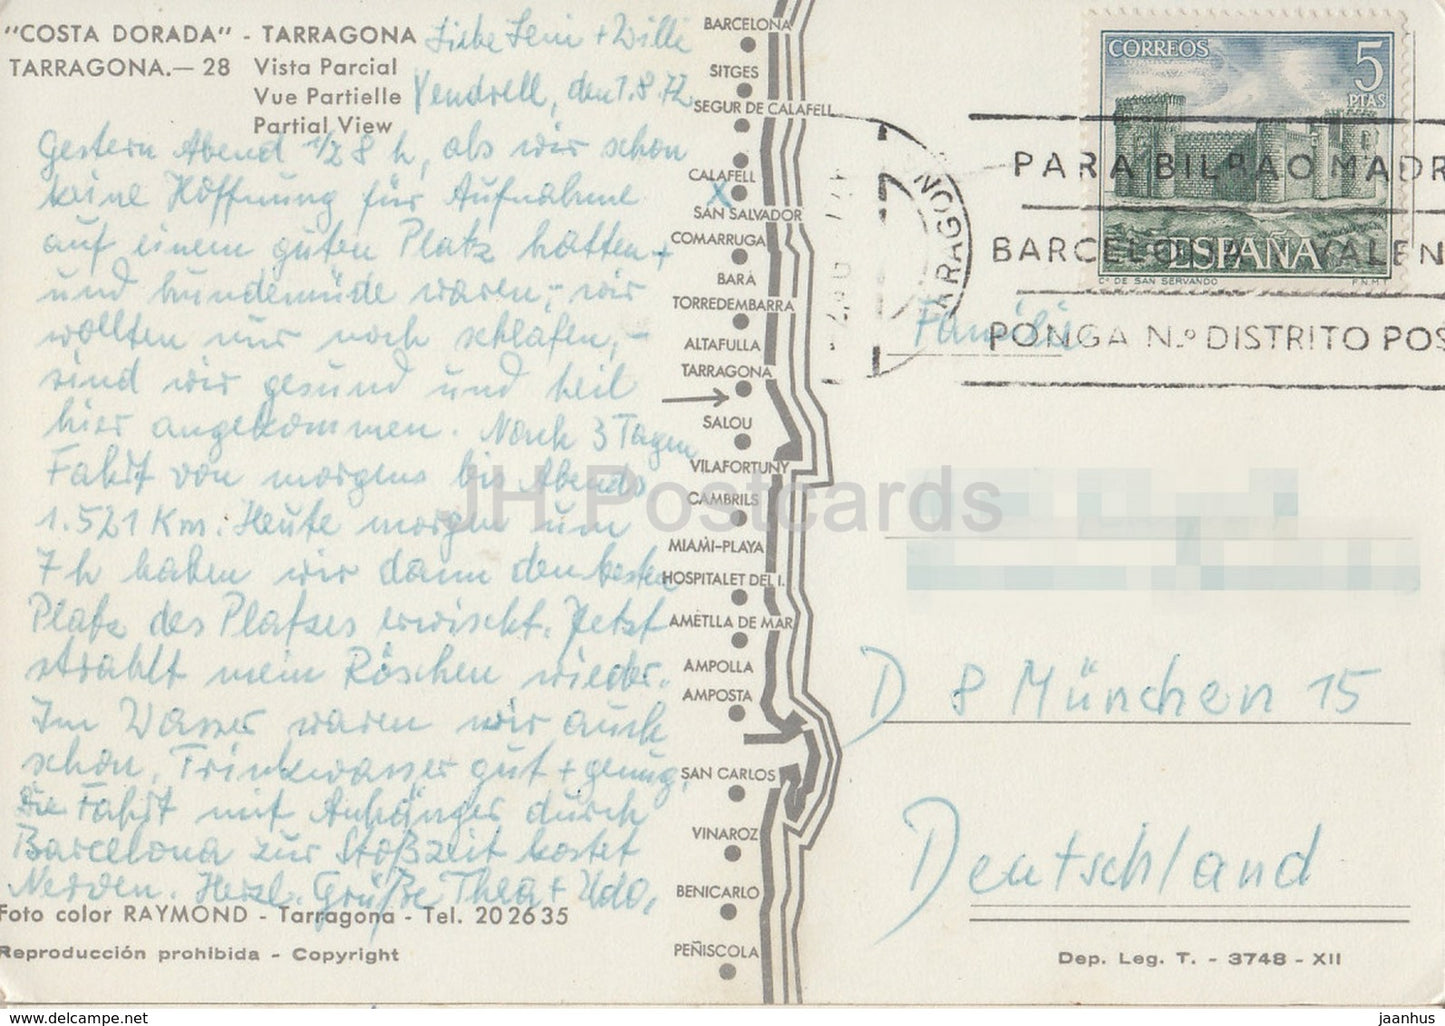 "COSTA DORADA" - TARRAGONA
TARRAGONA.— 28 Vista Parcial
Vue Partielle
Partial View
Liebe Leni + Willi
Vendrell, den 1.8.72
Gestern Abend 1/2 8 h, als wir schon
keine Hoffnung für Aufnahme
auf einem guten Platz hatten +
und hundemüde waren, - wir
wollten nur noch schlafen, -
sind wir gesund und heil
hier angekommen. Nach 3 Tagen
Fahrt von morgens bis Abends
1.521 Km. Heute morgen um
7 h haben wir dann den besten
Platz des Platzes erwischt. Jetzt
strahlt mein Röschen wieder.
Im Wasser waren wir auch
schon. Trinkwasser gut + genug,
Die Fahrt mit Anhänger durch
Barcelona zur Stoßzeit kostet
Nerven. Herzl. Grüße Thea + Udo.
Foto color RAYMOND - Tarragona - Tel. 202635
Reproducción prohibida - Copyright
BARCELONA
SITGES
SEGUR DE CALAFELL
CALAFELL
X
SAN SALVADOR
COMARRUGA
BARÁ
TORREDEMBARRA
ALTAFULLA
TARRAGONA
SALOU
VILAFORTUNY
CAMBRILS
MIAMI-PLAYA
HOSPITALET DEL I.
AMETLLA DE MAR
AMPOLLA
AMPOSTA
SAN CARLOS
VINAROZ
BENICARLO
PEÑISCOLA
CORREOS
5
PTAS
ESPAÑA
Cº DE SAN SERVANDO F.N.M.T.
PARA BILBAO MADR
BARCELONA VALEN
PONGA N.º DISTRITO POS
ARAGON
Familie
D 8 München 15
Deutschland
Dep. Leg. T. - 3748 - XII
JH Postcards
www.delcampe.net
jaanhus